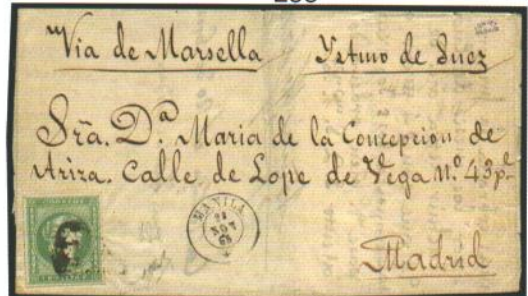 Via de Marsella Ystmo de Suez
Sra. Dª. Maria de la Concepcion de
Ariza. Calle de Lope de Vega n.º 43 pl
MANILA
NOV
Madrid